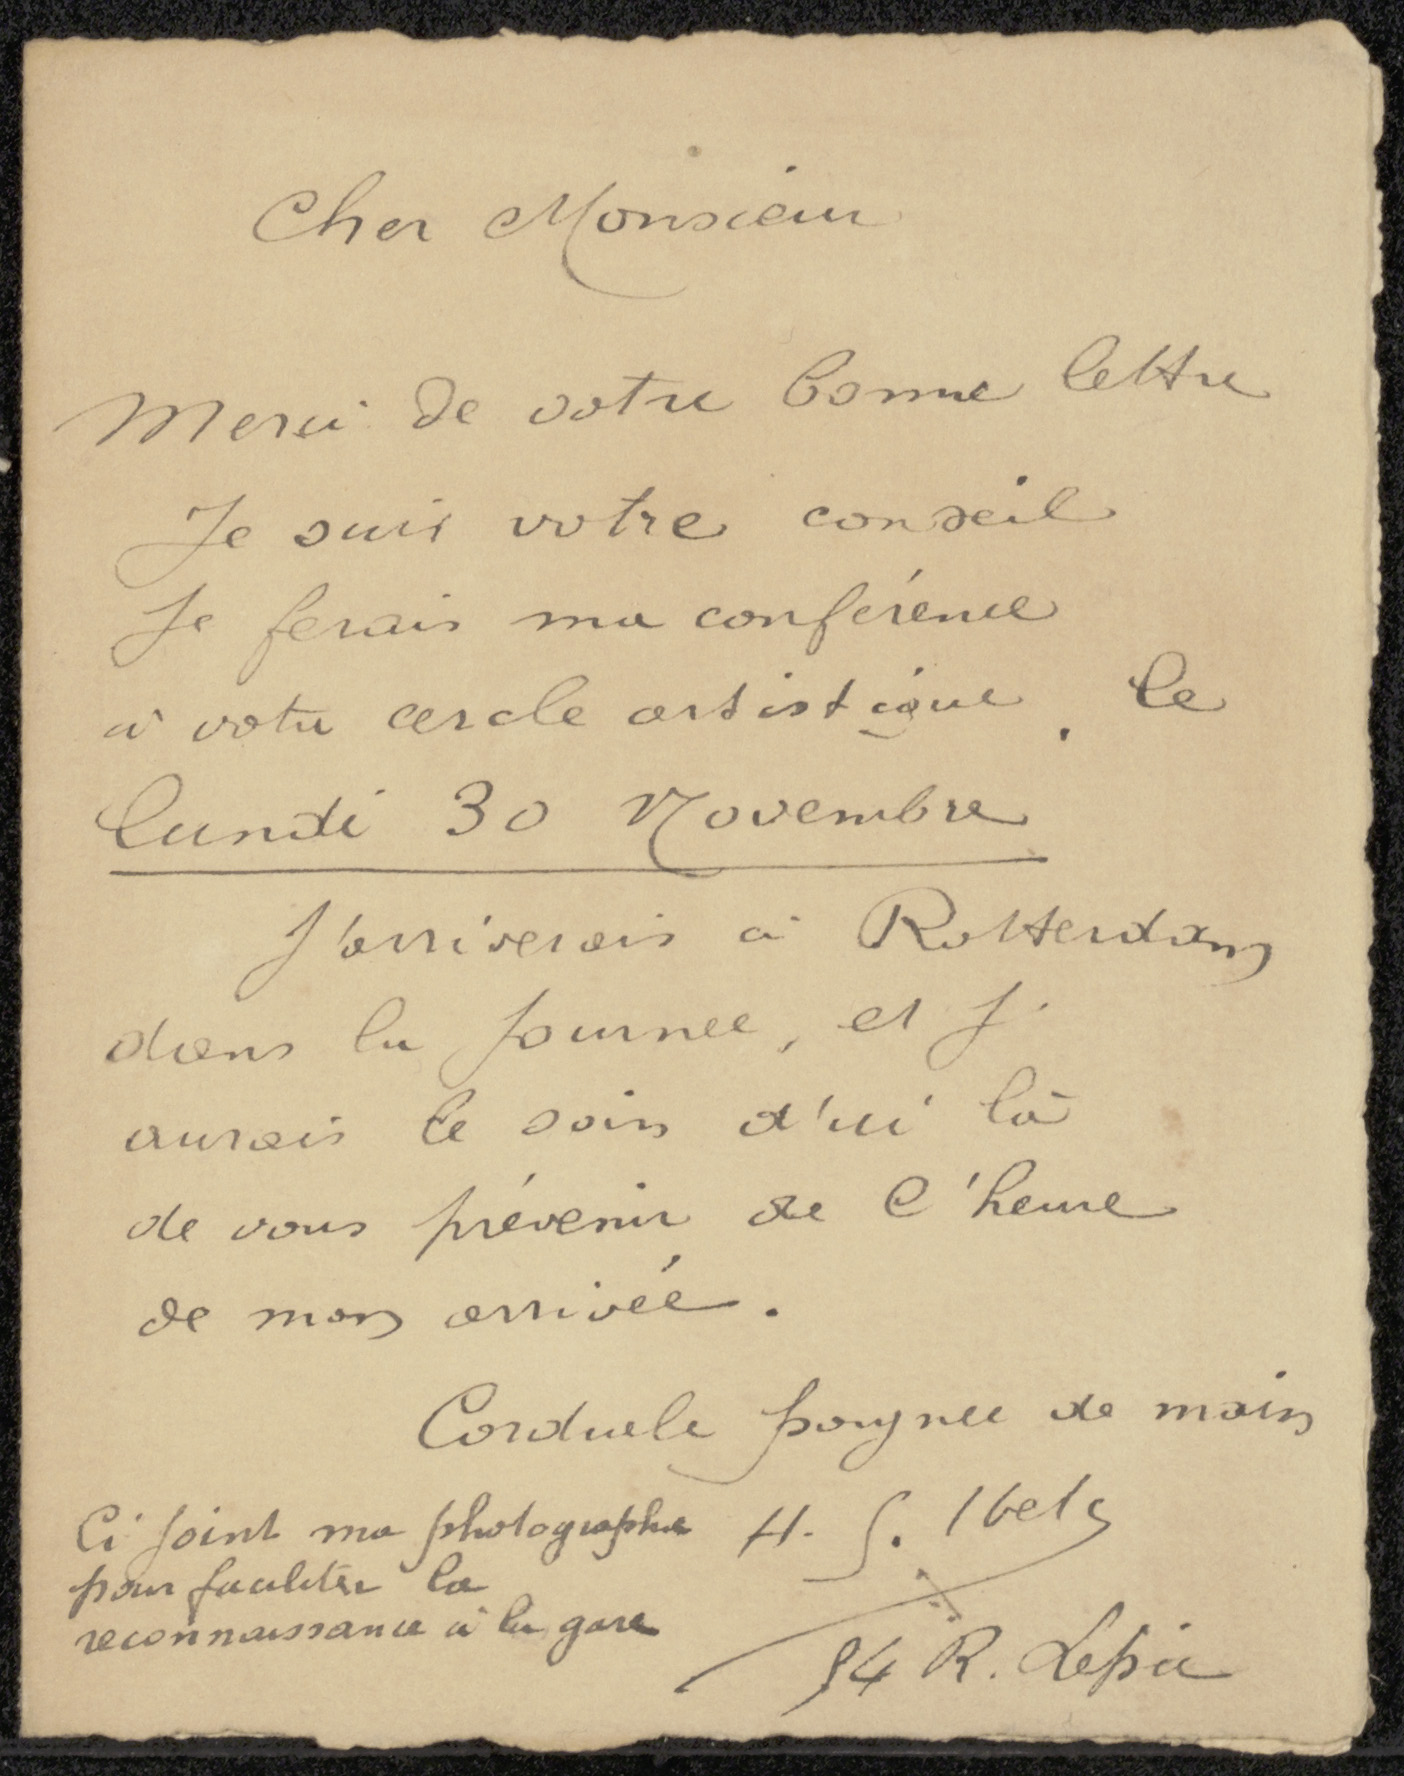 Cher Monsieur
Merci de votre bonne lettre
Je suis votre conseil
Je ferais ma conférence
à votre cercle artistique. le
Lundi 30 Novembre
J'arriverais à Rotterdam
dans la Journee, et J'
aurais le soin d'ici là
de vous prévenir de l'heure
de mon arrivée.
Corduele poignee de main
H. G. Ibels
94 R. Lepic
Ci Joint ma photographie
pour faciliter la
reconnaissance à la gare